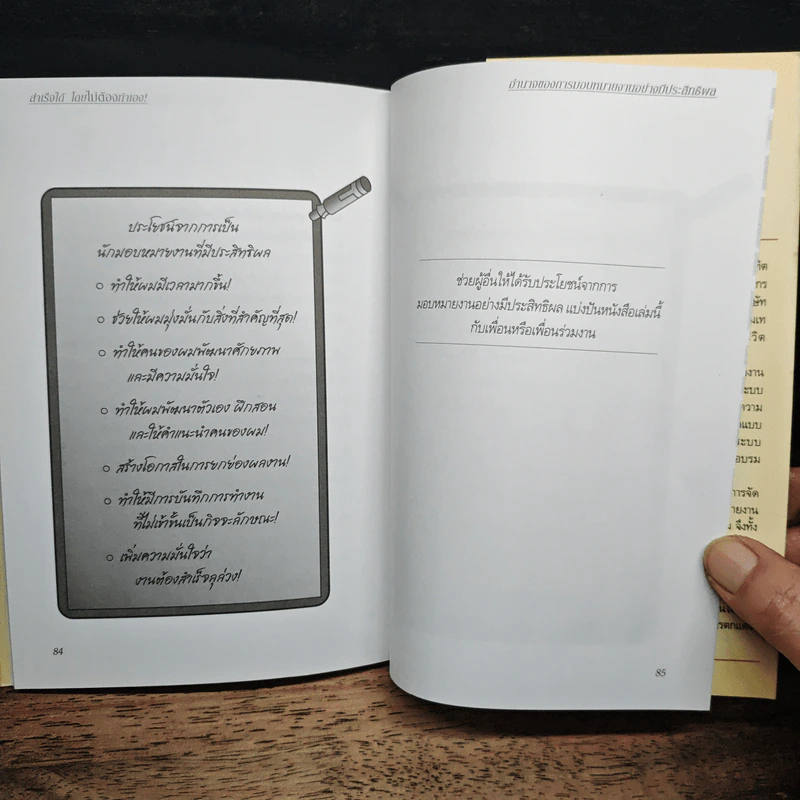 สำเร็จได้ โดยไม่ต้องทำเอง!
ประโยชน์จากการเป็น
นักมอบหมายงานที่มีประสิทธิผล
ทำให้ผมมีเวลามากขึ้น!
ช่วยให้ผมมุ่งมั่นกับสิ่งที่สำคัญที่สุด!
ทำให้คนของผมพัฒนาศักยภาพ
และมีความมั่นใจ!
ทำให้ผมพัฒนาตัวเอง ฝึกสอน
และให้คำแนะนำคนของผม!
สร้างโอกาสในการยกย่องผลงาน!
ทำให้มีการบันทึกการทำงาน
ที่ไม่เข้าขั้นเป็นกิจจะลักษณะ!
เพิ่มความมั่นใจว่า
งานต้องสำเร็จลุล่วง!
84
อำนาจของการมอบหมายงานอย่างมีประสิทธิผล
ช่วยผู้อื่นให้ได้รับประโยชน์จากการ
มอบหมายงานอย่างมีประสิทธิผล แบ่งปันหนังสือเล่มนี้
กับเพื่อนหรือเพื่อนร่วมงาน
85
การ
ยงาน
ะบบ
ความ
าแบบ
ระบบ
อบรม
การจัด
ายงาน
จึงทั้ง